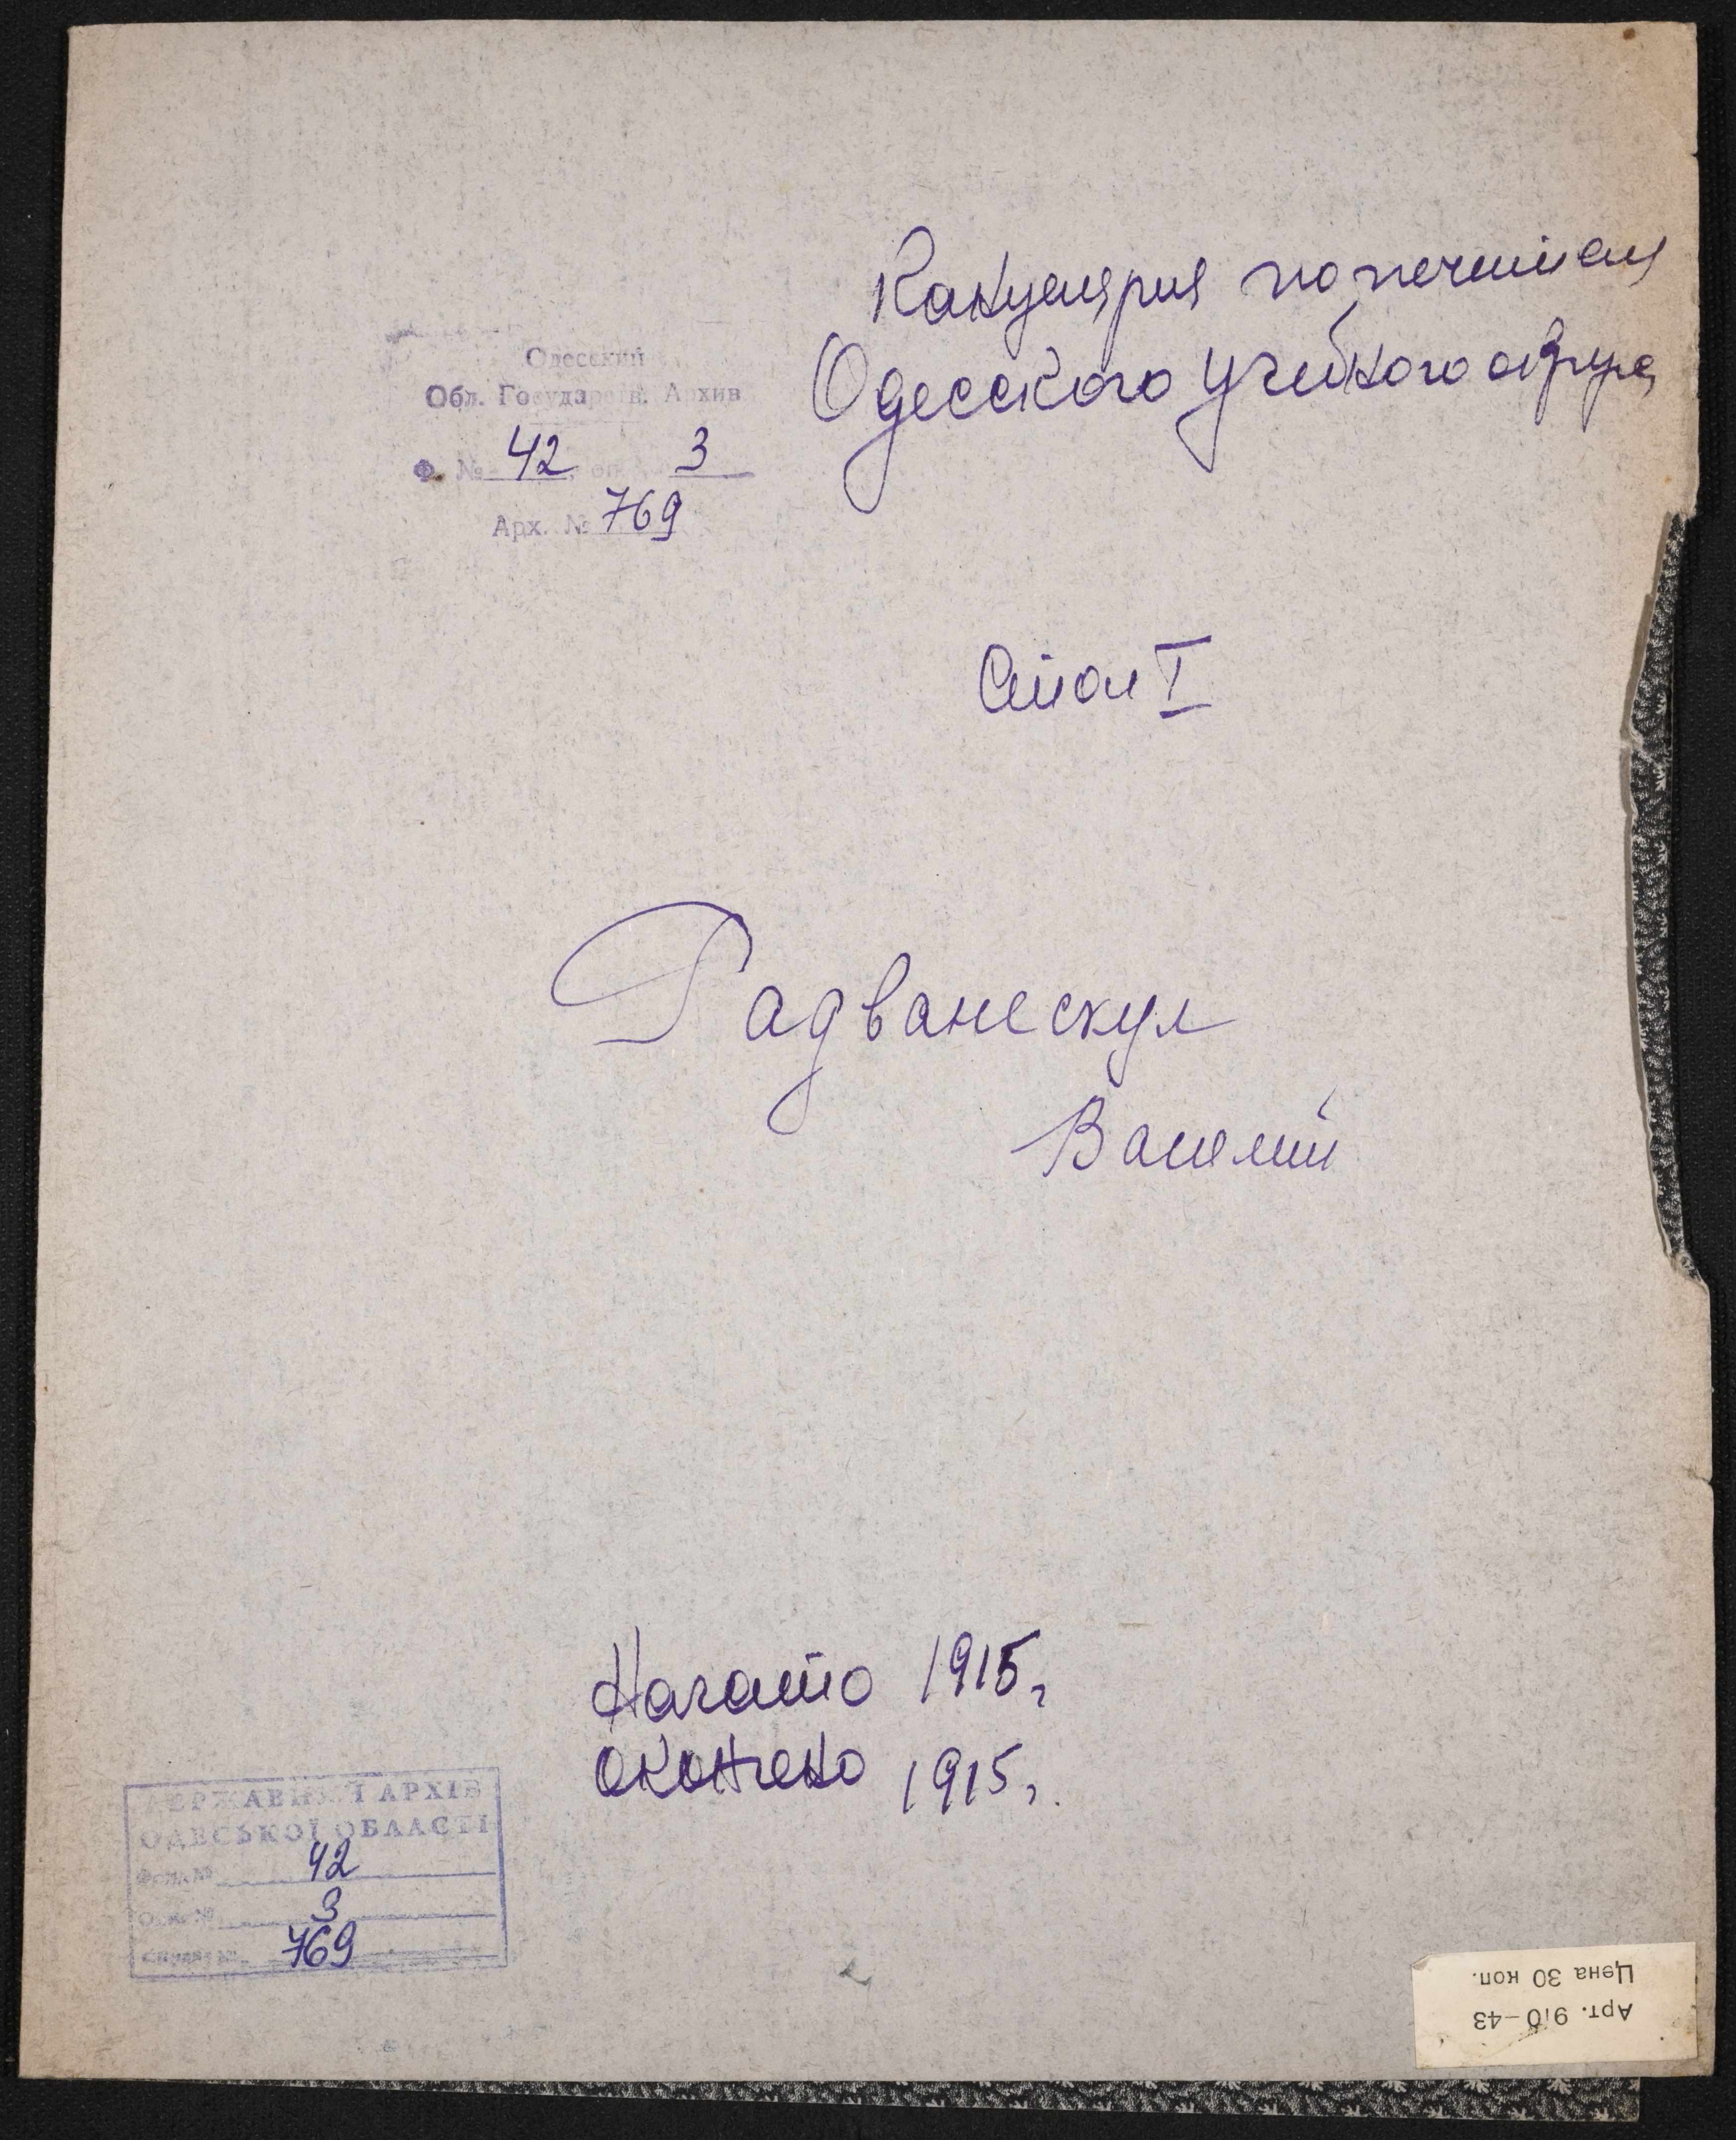 Канцелярия попечителя
Одесского учебного округа
Одесский
Обл. Государств. Архив
Ф. № 42 оп. 3
Арх. № 769
Стол I
Радванескул
Василий
Начато 1915г
окончено 1915г.
ДЕРЖАВНИЙ АРХІВ
ОДЕСЬКОЇ ОБЛАСТІ
Фонд № 42
Опис № 3
Справа № 769
Арт. 910-43
Цена 30 коп.